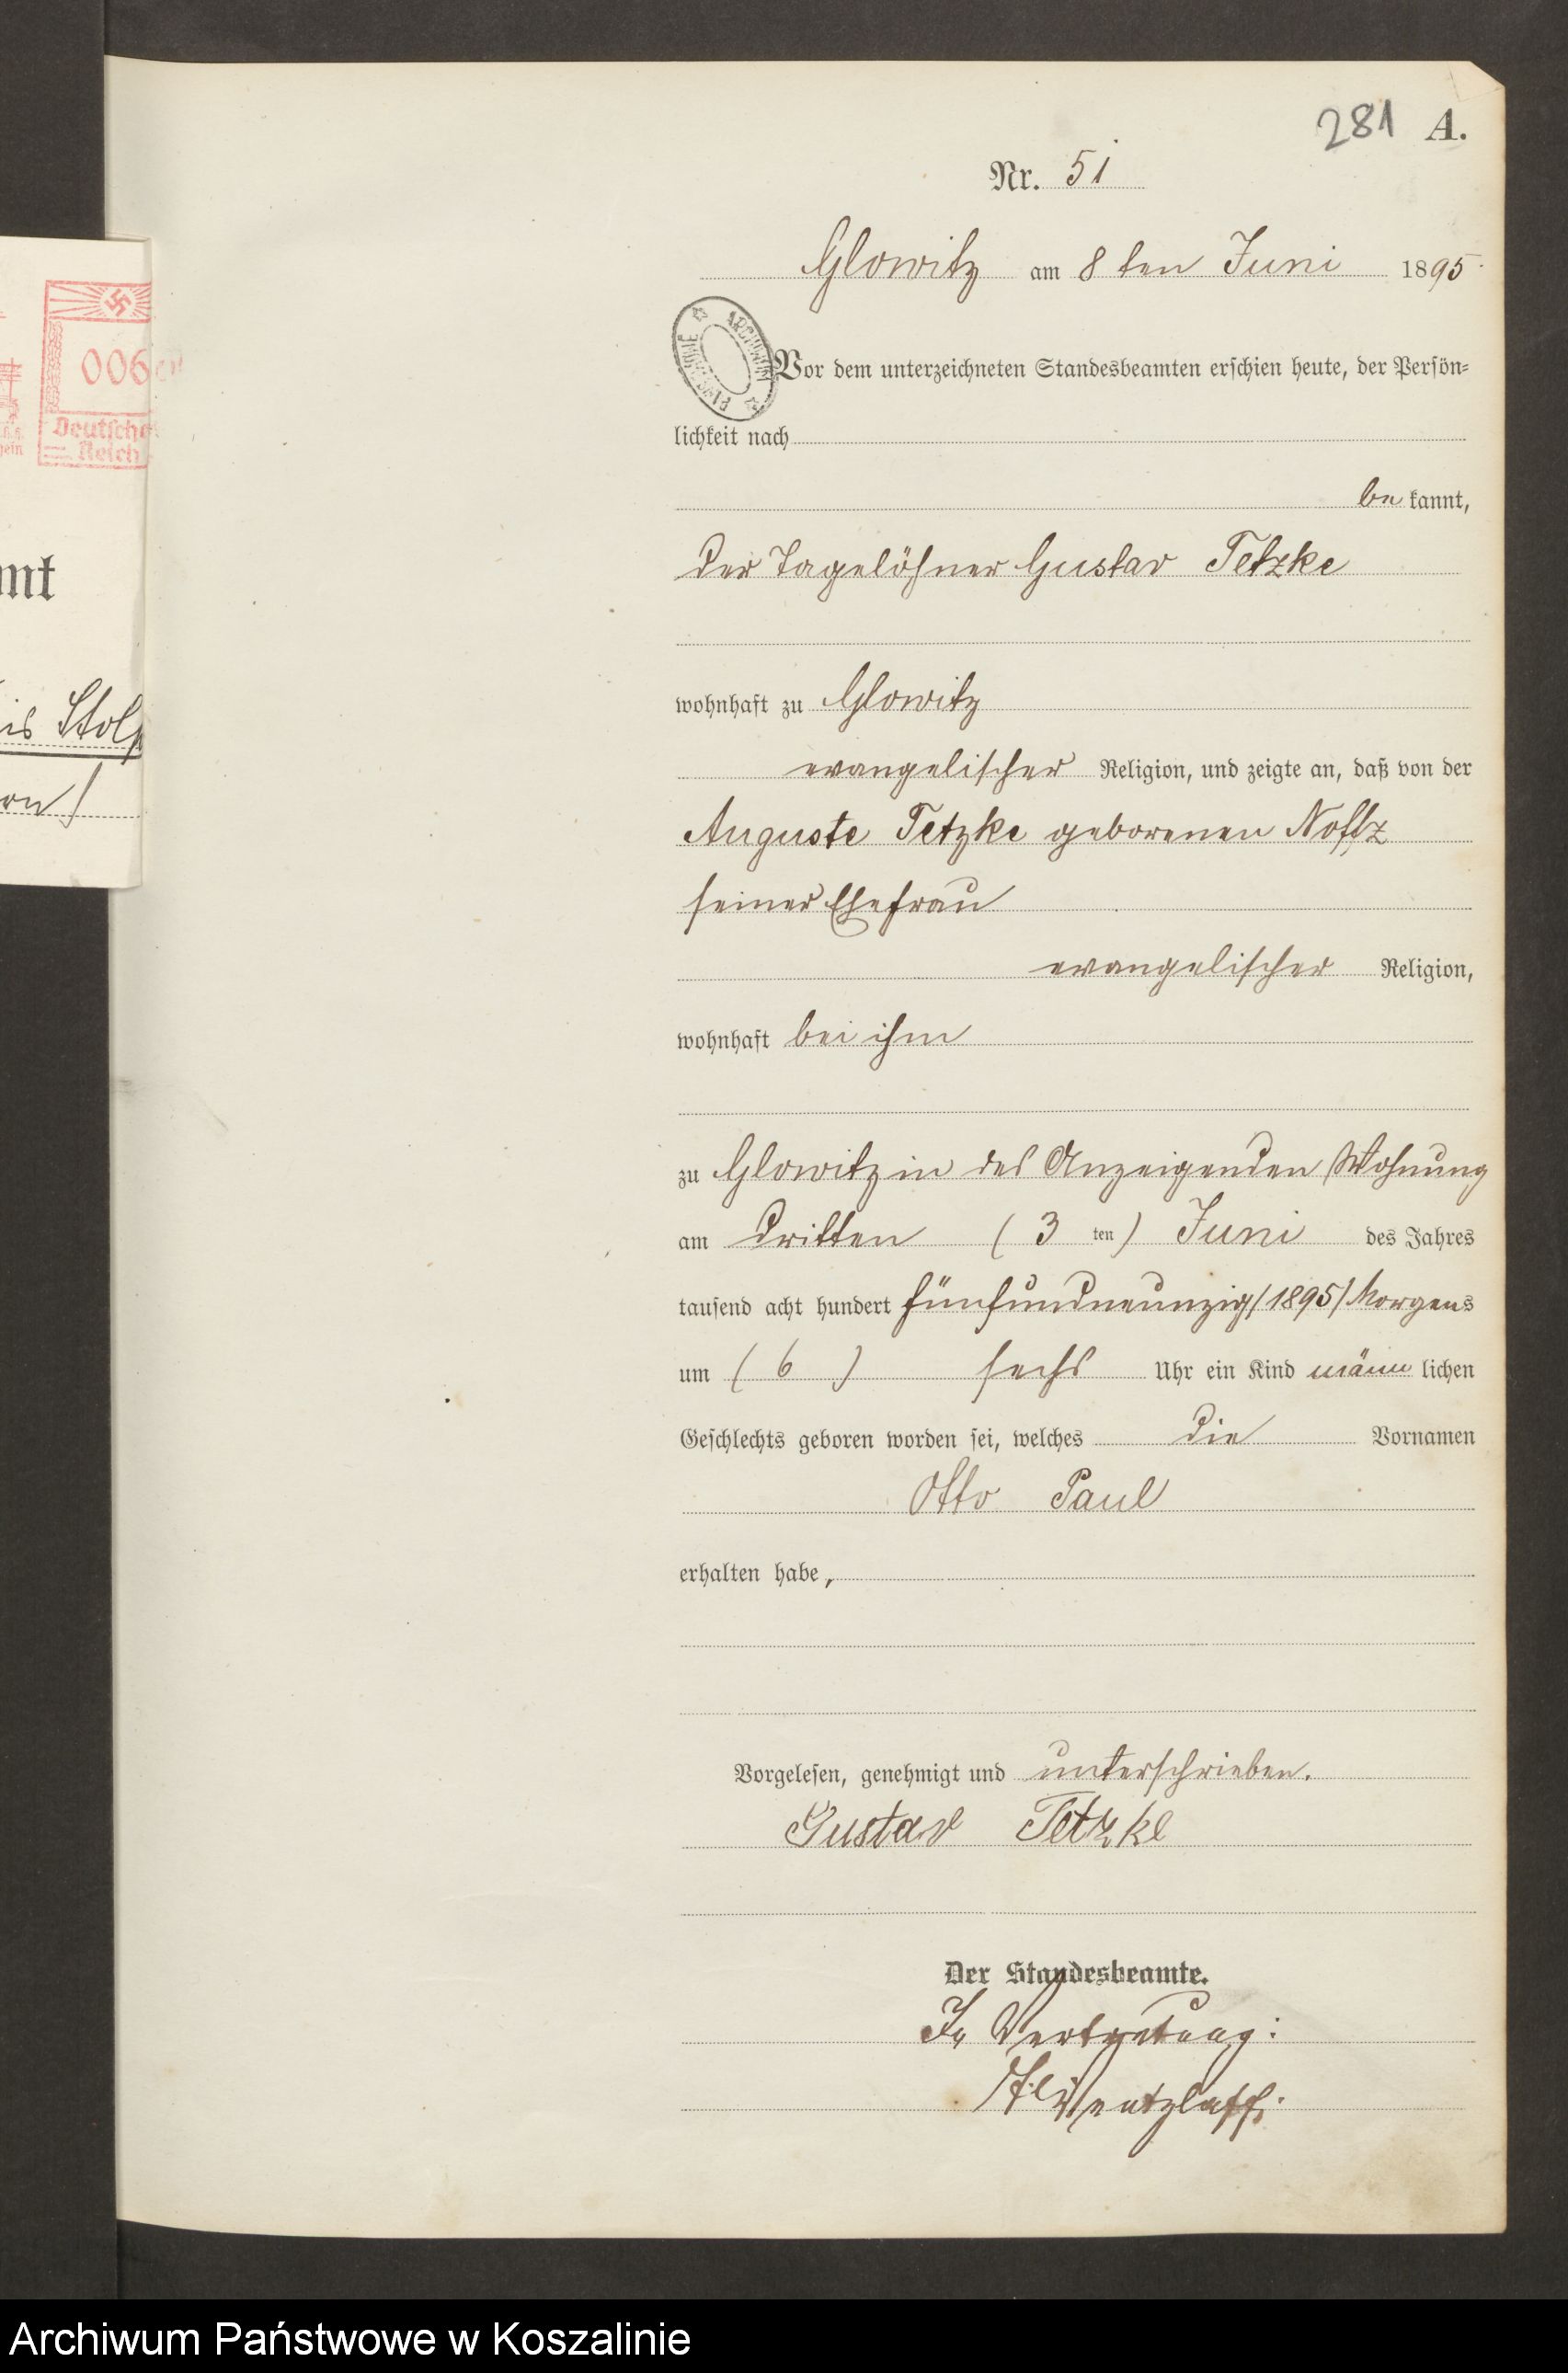 281 A.
Nr. 51
Glowitz am 8ten Juni 1895
Vor dem unterzeichneten Standesbeamten erschien heute, der Persön-
lichkeit nach
be kannt,
der Tagelöhner Gustav Tetzke
wohnhaft zu Glowitz
evangelischer Religion, und zeigte an, daß von der
Auguste Tetzke geborenen
seiner Ehefrau
evangelischer Religion,
wohnhaft bei ihm
zu Glowitz in des Anzeigenden Wohnung
am dritten (3 ten) Juni des Jahres
tausend acht hundert fünfundneunzig (1895) Morgens
um (6) sechs Uhr ein Kind männ lichen
Geschlechts geboren worden sei, welches die Vornamen
Otto Paul
erhalten habe,
Vorgelesen, genehmigt und unterschrieben.
Gustav Tetzke
Der Standesbeamte.
In Vertretung:
ARCHIWUM
006
Deutsches
Reich
mt
is Stolp
Archiwum Państwowe w Koszalinie